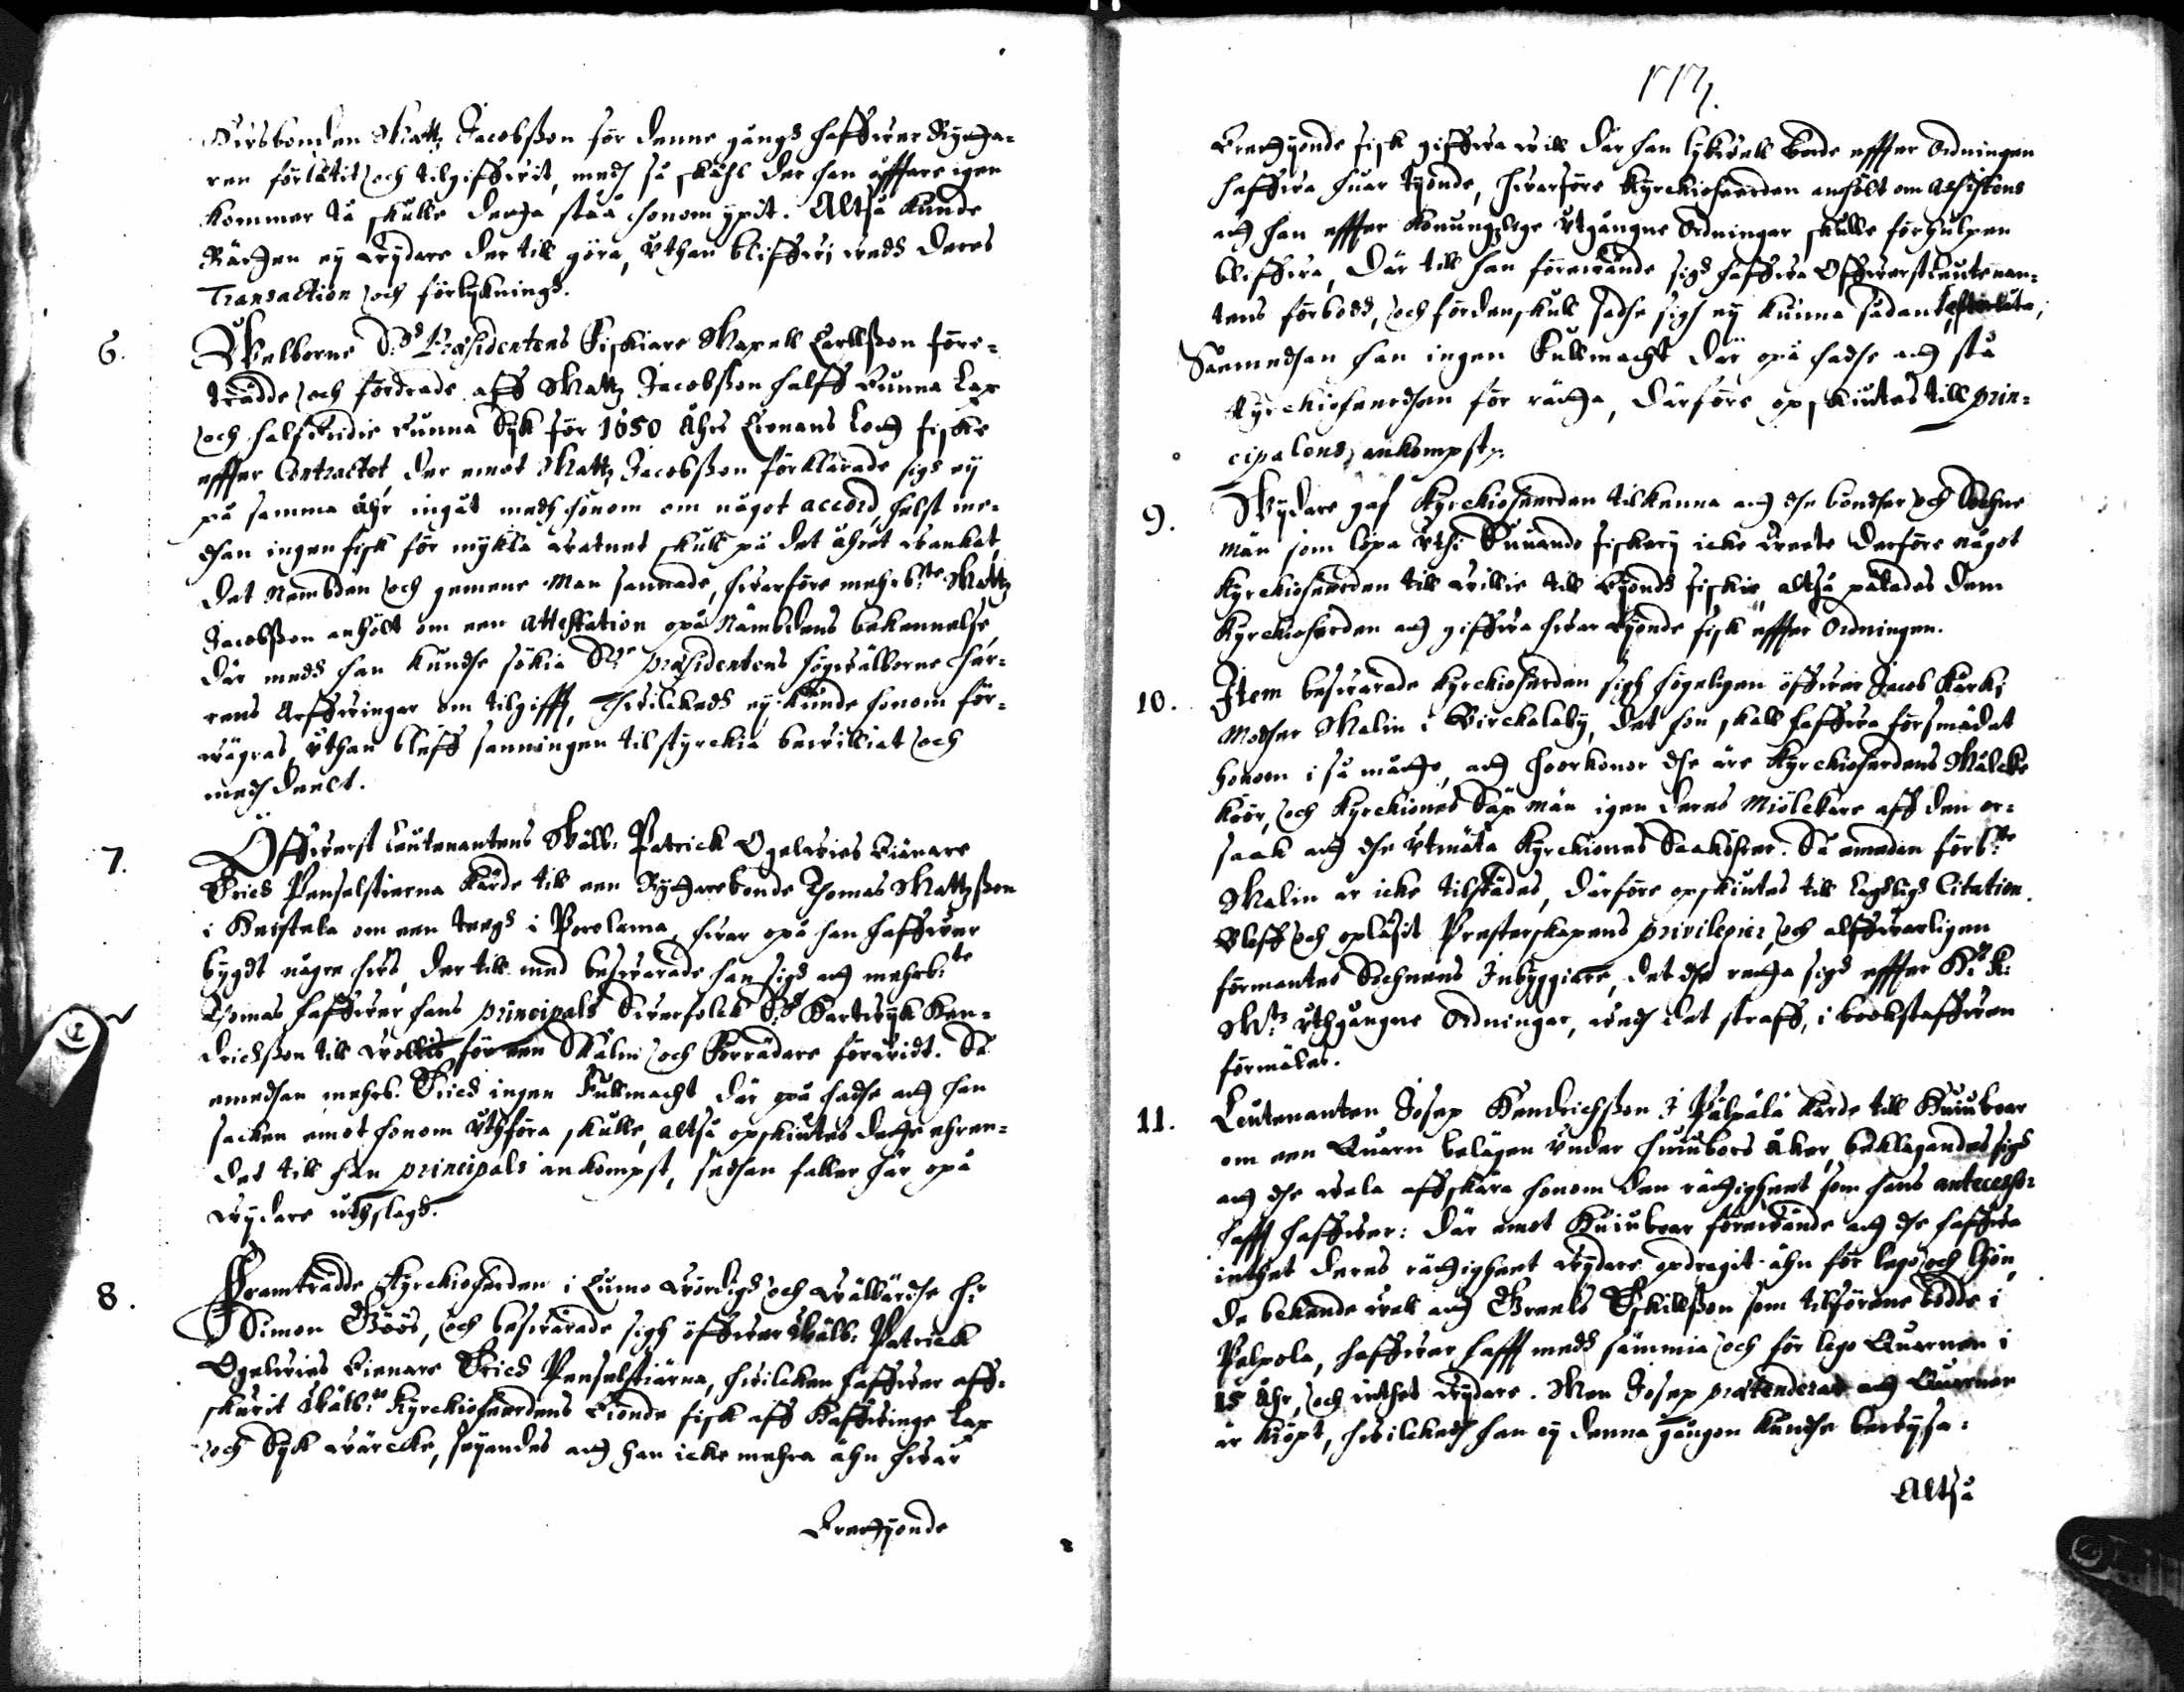 Huusbonden Matz Jacobsson för denne gångh haffuer Rytta-
ren förlåtit och tilgiffuit, medh så skähl der han offtare igen
kommer tå skulle detta ståå honom ypit. Altså kunde
Rätten ey wydare der till göra, Uthan bliffwi widh deres
Transaction och förlykningh.
6. Welborne H:r Præsidentens Fiskiare Mapell Carllsson före-
trädde och fordrade aff Matz Jacobsson halff Tunna Lax
och halftridie Tunna Syk för 1650 Åhrs Lott fiske
effter Contractet, der emot Matz Jacobsson förklarade sigh ey
på samma åhr ingåt medh honom om något accord, helst me-
dhan ingen fisk för mykla watnet skull på det åhret wankat,
det Nämbden och gemene Man sannade, hwarföre mehrb:te Matz
Jacobsson anhölt om een attestation opå Nämbdens bekennelse,
där medh han kundhe sökia H:r præsidentens högwälborne Her-
rens Arffwingar om tilgifft, hwilckedh ey kunde honom för-
wägras, Uthan bleff sanningen til styrckia bewilliat och
medh deelt.
7. Öffwerst Leutenantens Wälb: Patrick Ogelwies Tiänare
Erich Penselstierna kärde till een Ryttarebonde Thomas Matzsson
i Kristala om een teegh i Porolama, hwar opå han haffwer
bygdt någre huus, der till med beswärade han sigh att mehrb:te
Thomas haffwer hans principals Swerfolck H:r Hartwijk Hen-
drichsson till wellis för een Skälm och Förrädare förwidt. Så
emedhan mehrb. Erich ingen Fullmacht där opå hadhe att han
saken emot honom Uthföra skulle, altså opskiutes dette ährens-
det till han principals ankompst, sedhan faller här opå
wydare uthslagh.
8. Framträdde Kyrckioherden i Cumo wördigh och wällärdhe H:r
Simon Göös, och beswärade sigh öffwer Wälb: Patrick
Ogelwies Tienare Erich Penselstiärna, hwilcken haffwer aff-
skurit Wälb:te Kyrckioheerdens Tionde fisk aff Haffwinge Lax
och Syk wärcke, seyandes att han icke mehra ähn hwar
Trettyonde
173.
Trettyonde fisk giffwa will där han lykwell borde effter Ordningen
haffwa huar tyonde, hwarföre Kyrckioheerden anhölt om Assistens
att han effter Konungzlige Utgångne Ordningar skulle förhulpen
bliffwa, där till han förewände sigh haffwa Öffwerstleutenan-
tens förbodh, och fördenskull sadhe sigh ey kunna sådant efterlåta,
Såemedhan han ingen Fullmacht där opå hadhe att stå
Kyrckioherdhen för rätta, därföre opskiutes till prin-
cipalens ankompst.
9. Wydare gaf Kyrckioheerden tilkenna att dhe bönder och Sochne
män som löpa Uthi Siuando fiskery icke Weete derföre något
Kyrckioheerden till willie till tyondh fiskie, altså pålades dem
Kyrckioherden att giffwa hwar tyonde fisk effter Ordningen.
10. Item beswärade Kyrckioherden sigh högeligen öffwer Jacob Kurki
Modher Malin i Birckalaby, det hon skall haffwa försmädat
honom i så måtto, att Hoorkonor dhe äre Kyrckioherdens Mölcke
Koor, och Kyrckiones Säx män igen deres Miölckare aff den or-
saak att dhe Utmäta Kyrckiones Saaköhrer. Så emedan förb:te
Malin är icke tilstädes, därföre opskiutes till lagligh Citation.
Bleff och opläsit Presterskapens privilegier och alffwarligen
förmantes Sochnens Inbyggiare, det dhe retta sigh effter H:s K:
M:tz Uthgångne Ordningar, widh det straff, i bookstaffwen
förmäles.
11. Leutenanten Josep Hendrichsson i Pälpälä kärde till Huiuboar
om een Quarn belägen Under Huiubors åker, beklagandes sigh
att dhe wela affskära honom den rättigheet som hans antecess:
hafft haffwer: där emot Huiuboar förewände att dhe haffwa
inthet deres rättigheet wydare opdragit ähn för lego och Hön,
de bekände well att Greels Eskillsson som tilförene bodde i
Pelpola, haffwer hafft medh sämmia och för lego Quarnen i
15 åhr, och inthet wydare. Men Josep prætenderar att Quarnen
är kiöpt, hwilckedh han ey denna gången kundhe bewysa:
Altså